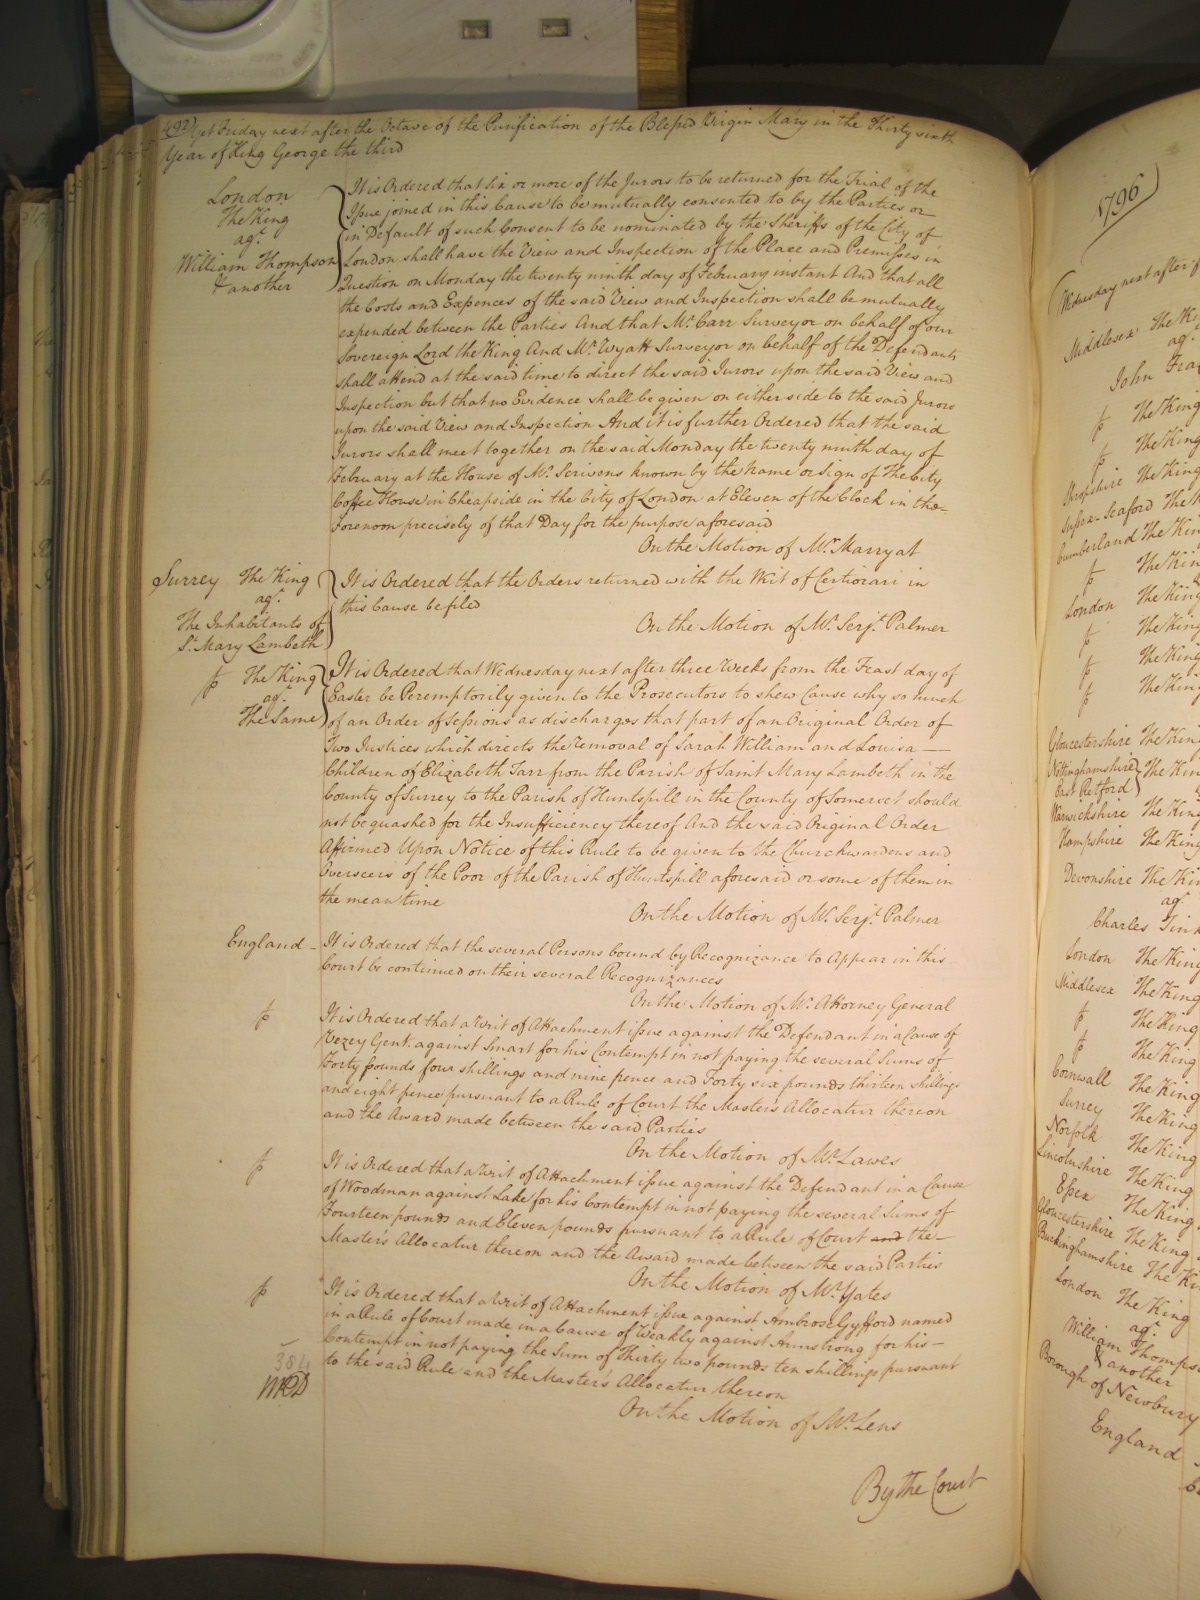 492) Yet Friday next after the Octave of the Purification of the Blessed Virgin Mary in the Thirty sixth
Year of King George the third
London
The King
agt.
William Thompson
& another
It is Ordered that six or more of the Jurors to be returned for the Trial of the
Issue joined in this Cause to be mutually consented to by the Parties or
in Default of such Consent to be nominated by the Sheriffs of the City of
London shall have the View and Inspection of the Place and Premisses in
Question on Monday the twenty ninth day of February instant And that all
the Costs and Expences of the said View and Inspection shall be mutually
expended between the Parties And that Mr. Carr Surveyor on behalf of our
Sovereign Lord the King And Mr. Wyatt Surveyor on behalf of the Defendants
shall attend at the said time to direct the said Jurors upon the said View and
Inspection but that no Evidence shall be given on either side to the said Jurors
upon the said View and Inspection And it is further Ordered that the said
Jurors shall meet together on the said Monday the twenty ninth day of
February at the House of Mr. Scrivens known by the Name or Sign of The City
Coffee House in Cheapside in the City of London at Eleven of the Clock in the
Forenoon precisely of that Day for the purpose aforesaid
On the Motion of Mr. Marryat
Surrey The King
agt.
The Inhabitants of
St. Mary Lambeth
It is Ordered that the Orders returned with the Writ of Certiorari in
this Cause be filed
On the Motion of Mr. Serjt. Palmer
The King
agt.
The Same
It is Ordered that Wednesday next after three Weeks from the Feast day of
Easter be Peremptorily given to the Prosecutors to shew Cause why so much
of an Order of Sessions as discharges that part of an Original Order of
Two Justices which directs the removal of Sarah William and Louisa
Children of Elizabeth Tarr from the Parish of Saint Mary Lambeth in the
County of Surrey to the Parish of Huntspill in the County of Somerset should
not be quashed for the Insufficiency thereof And the said Original Order
Affirmed Upon Notice of this Rule to be given to the Churchwardens and
Overseers of the Poor of the Parish of Huntspill aforesaid or some of them in
the mean time
On the Motion of Mr. Serjt. Palmer
England
It is Ordered that the several Persons bound by Recognizance to Appear in this
Court be continued on their several Recognizances
On the Motion of Mr. Attorney General
It is Ordered that a Writ of Attachment issue against the Defendant in a Cause of
Vezey Gent. against Smart for his Contempt in not paying the several Sums of
Forty pounds four shillings and nine pence and Forty six pounds thirteen shillings
and eight pence pursuant to a Rule of Court the Master's Allocatur thereon
and the Award made between the said Parties
On the Motion of Mr. Lawes
It is Ordered that a Writ of Attachment issue against the Defendant in a Cause
of Woodman against Lake for his Contempt in not paying the several Sums of
Fourteen pounds and Eleven pounds pursuant to a Rule of Court and the
Master's Allocatur thereon and the Award made between the said Parties
On the Motion of Mr. Yates
It is Ordered that a Writ of Attachment issue against Ambrose Gyfford named
in a Rule of Court made in a Cause of Weakly against Armstrong for his
Contempt in not paying the Sum of Thirty two pounds ten shillings pursuant
to the said Rule and the Master's Allocatur thereon
On the Motion of Mr. Lens
By the Court
1796
Wednesday next after
Middlesex The
agt.
John
The King
The King
Shropshire The King
Sussex-Seaford The
Cumberland The King
The King
London The King
The King
The King
The King
Gloucestershire The King
Nottinghamshire The King
East Retford
Warwickshire The King
Hampshire The King
Devonshire The
agt.
Charles
London The King
Middlesex The King
The King
The King
Cornwall The King
Surrey The King
Norfolk The King
Lincolnshire The King
Essex The King
Gloucestershire The King
Buckinghamshire The
London The King
agt.
William Thompson
& another
Borough of Newbury
England